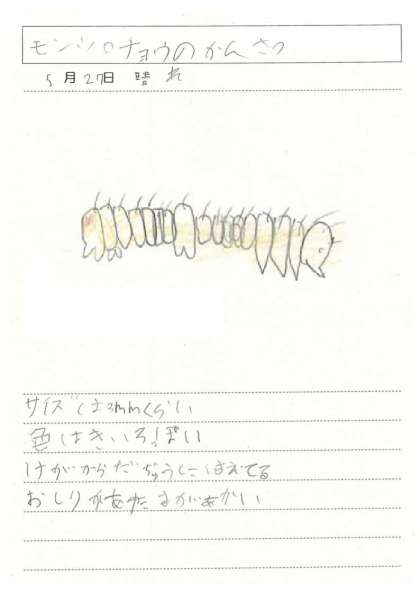 モンシロチョウのかんさつ
5月27日 晴れ
サイズは3mmくらい
色はきいろっぽい
けがからだぢゅうにはえてる
おしりがあたまがあかい